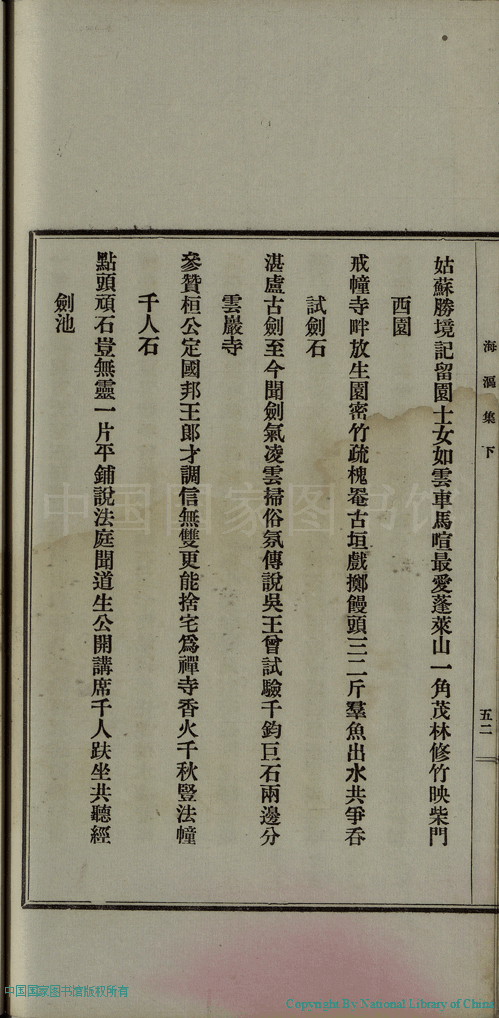 海漚集下
五二
姑蘇勝境記留園士女如雲車馬喧最愛蓬萊山一角茂林修竹映柴門
西園
戒幢寺畔放生園密竹疏槐罨古垣戲擲饅頭三二斤羣魚出水共爭吞
試劍石
湛盧古劍至今聞劍氣凌雲掃俗氛傳說吳王曾試驗千鈞巨石兩邊分
雲巖寺
參贊桓公定國邦王郎才調信無雙更能捨宅爲禪寺香火千秋豎法幢
千人石
點頭頑石豈無靈一片平鋪說法庭聞道生公開講席千人趺坐共聽經
劍池
中国国家图书馆
中国国家图书馆版权所有
Copyright By National Library of China